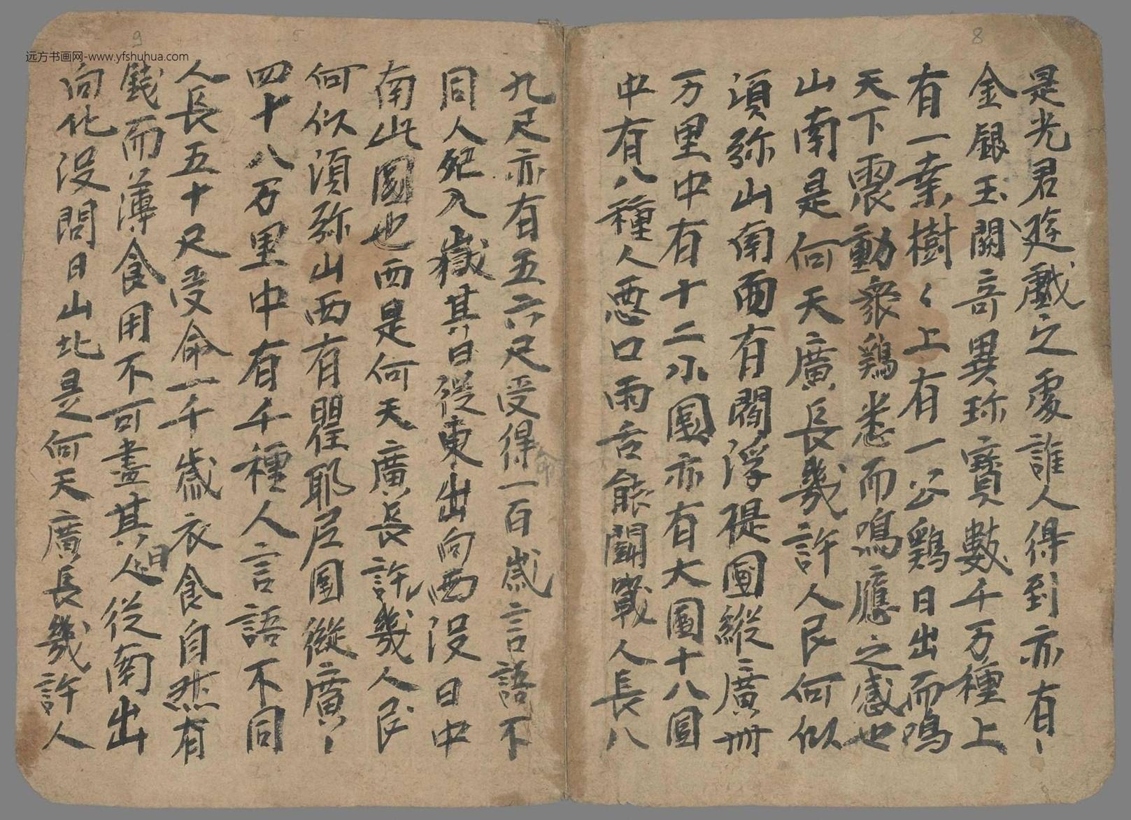 是光君遊戲之處誰人得到亦有〻
金銀玉闕奇異珎寶數千万種上
有一桒樹〻上有一公鷄日出而鳴
天下震動衆鷄悉而鳴應之感也
山南是何天廣長幾許人民何似
湏弥山南面有閻浮禔國縱廣卌
万里中有十二小國亦有大國十八圓
中有八種人悪口両舌餘闘戰人長八
九尺亦有五六尺受得一百歲言語不
命
同人死入嶽其日從東出向西没日中
南此國也西是何天廣長許幾人民
何似湏弥山西有瞿耶尼國縱廣〻
四十八万里中有千種人言語不同
人長五十尺受命一千歲衣食自然有
錢而薄食用不可盡其人從南出
日
向化没問日山北是何天廣長幾許人
8
9
远方书画网-www.yfshuhua.com